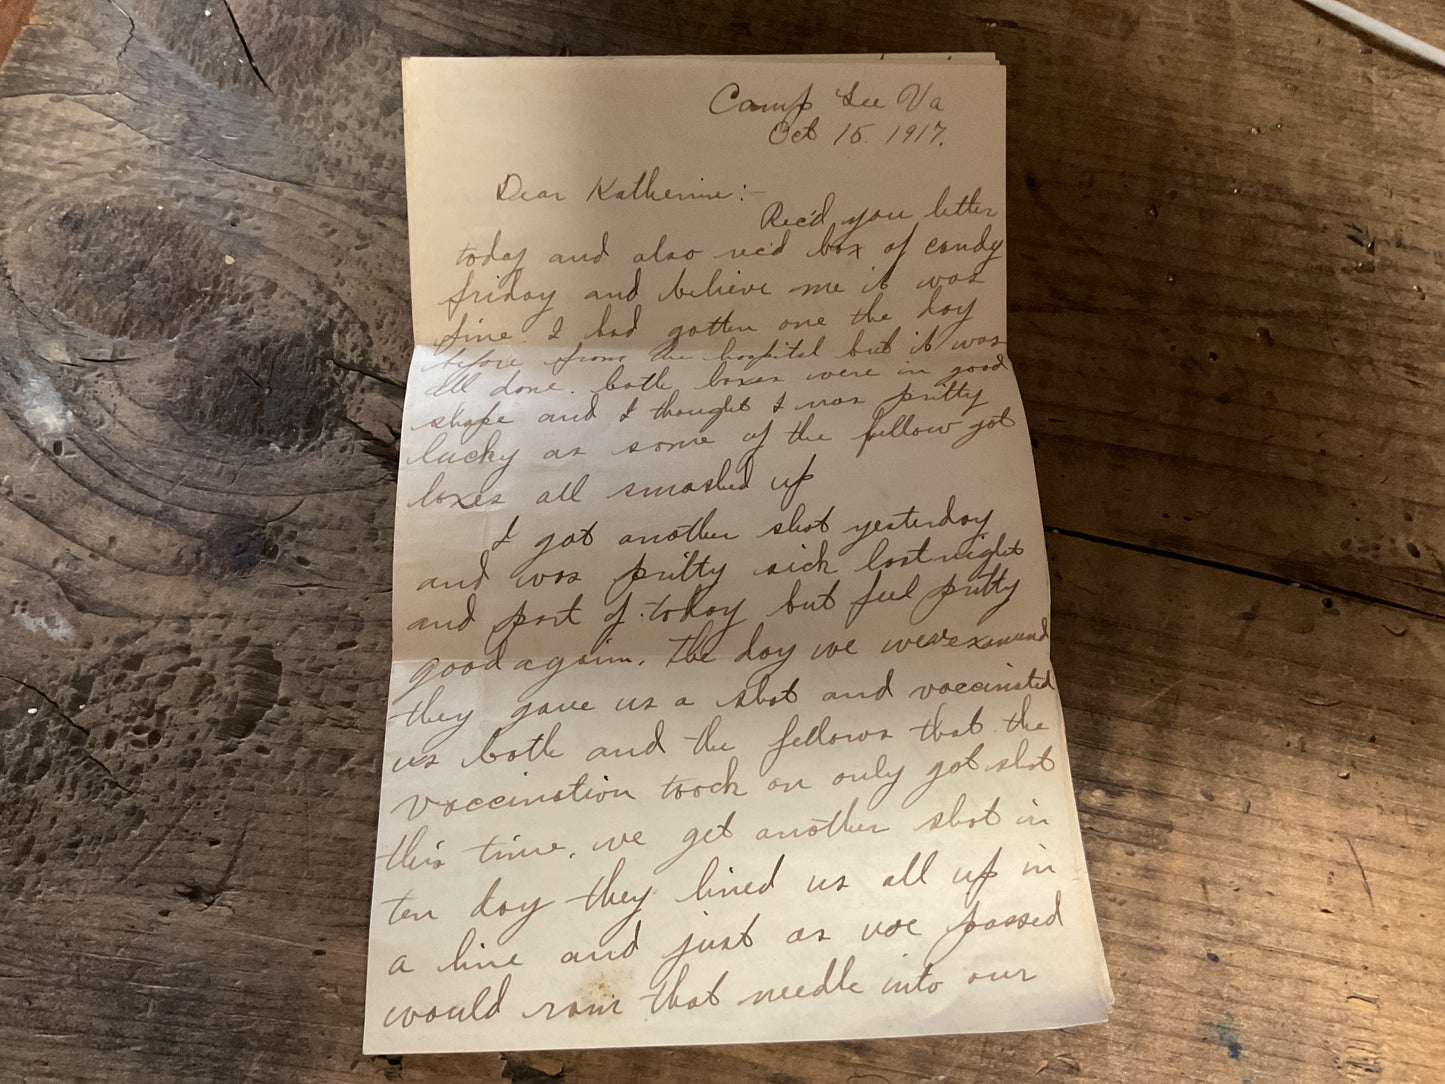 Camp Lee Va
Oct 15. 1917.
Dear Katherine:-
Rec'd you letter
today and also rec'd box of candy
friday and believe me it was
fine. I had gotten one the day
before from the hospital but it was
all done. both boxes were in good
shape and I thought I was pritty
lucky as some of the fellow got
boxes all smashed up
I got another shot yesterday
and was pritty sick last night
and part of today but feel pritty
good again. The day we were examund
they gave us a shot and vaccinated
us both and the fellows that the
vaccination toock on only got shot
this time. we get another shot in
ten day they lined us all up in
a line and just as we passed
would ram that needle into our